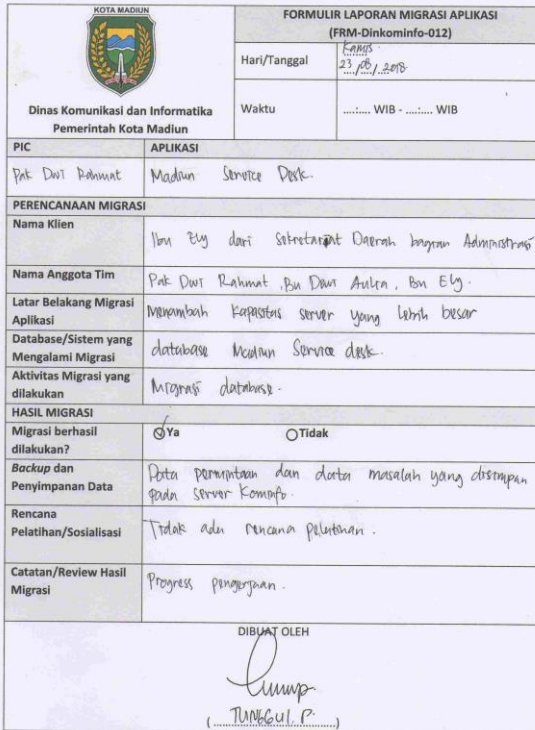 KOTA MADIUN
FORMULIR LAPORAN MIGRASI APLIKASI
(FRM-Dinkominfo-012)
Hari/Tanggal
Kamis
23/08/2018
Dinas Komunikasi dan Informatika
Pemerintah Kota Madiun
Waktu
....:.... WIB - ....:.... WIB
PIC
APLIKASI
Pak Dwi Rahmat
Madiun Service Desk.
PERENCANAAN MIGRASI
Nama Klien
Ibu Ely dari Sekretariat Daerah bagian Administrasi
Nama Anggota Tim
Pak Dwi Rahmat, Bu Dewi Aulia, Bu Ely.
Latar Belakang Migrasi
Aplikasi
Menambah kapasitas server yang lebih besar
Database/Sistem yang
Mengalami Migrasi
database Madiun Service desk.
Aktivitas Migrasi yang
dilakukan
Migrasi database.
HASIL MIGRASI
Migrasi berhasil
dilakukan?
Ya
Tidak
Backup dan
Penyimpanan Data
Data permintaan dan data masalah yang disimpan
pada server Kominfo.
Rencana
Pelatihan/Sosialisasi
Tidak ada rencana pelatihan.
Catatan/Review Hasil
Migrasi
Progress pengerjaan.
DIBUAT OLEH
(TUNGGUL. P.)